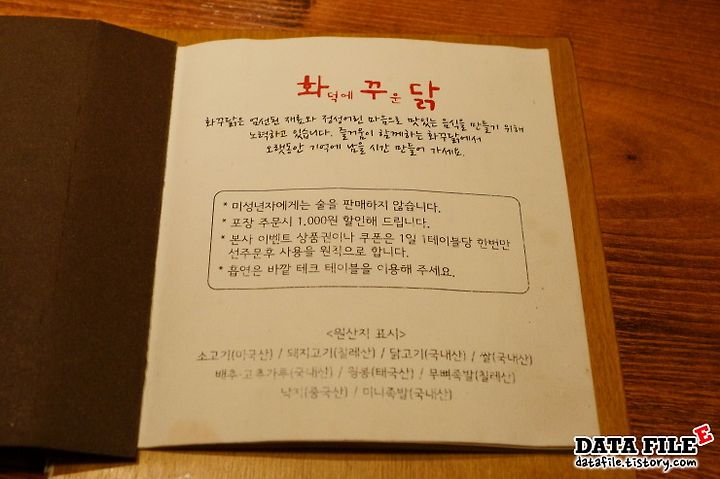 화덕에 꾸운 닭
화꾸닭은 엄선된 재료와 정성어린 마음으로 맛있는 음식을 만들기 위해
노력하고 있습니다. 즐거움이 함께하는 화꾸닭에서
오랫동안 기억에 남을 시간 만들어 가세요.
* 미성년자에게는 술을 판매하지 않습니다.
* 포장 주문시 1,000원 할인해 드립니다.
* 본사 이벤트 상품권이나 쿠폰은 1일 1테이블당 한번만
선주문후 사용을 원칙으로 합니다.
* 흡연은 바깥 테크 테이블을 이용해 주세요.
<원산지 표시>
소고기(미국산) / 돼지고기(칠레산) / 닭고기(국내산) / 쌀(국내산)
배추·고추가루(국내산) / 윙봉(태국산) / 무뼈족발(칠레산)
낙지(중국산) / 미니족발(국내산)
DATA FILE E
datafile.tistory.com